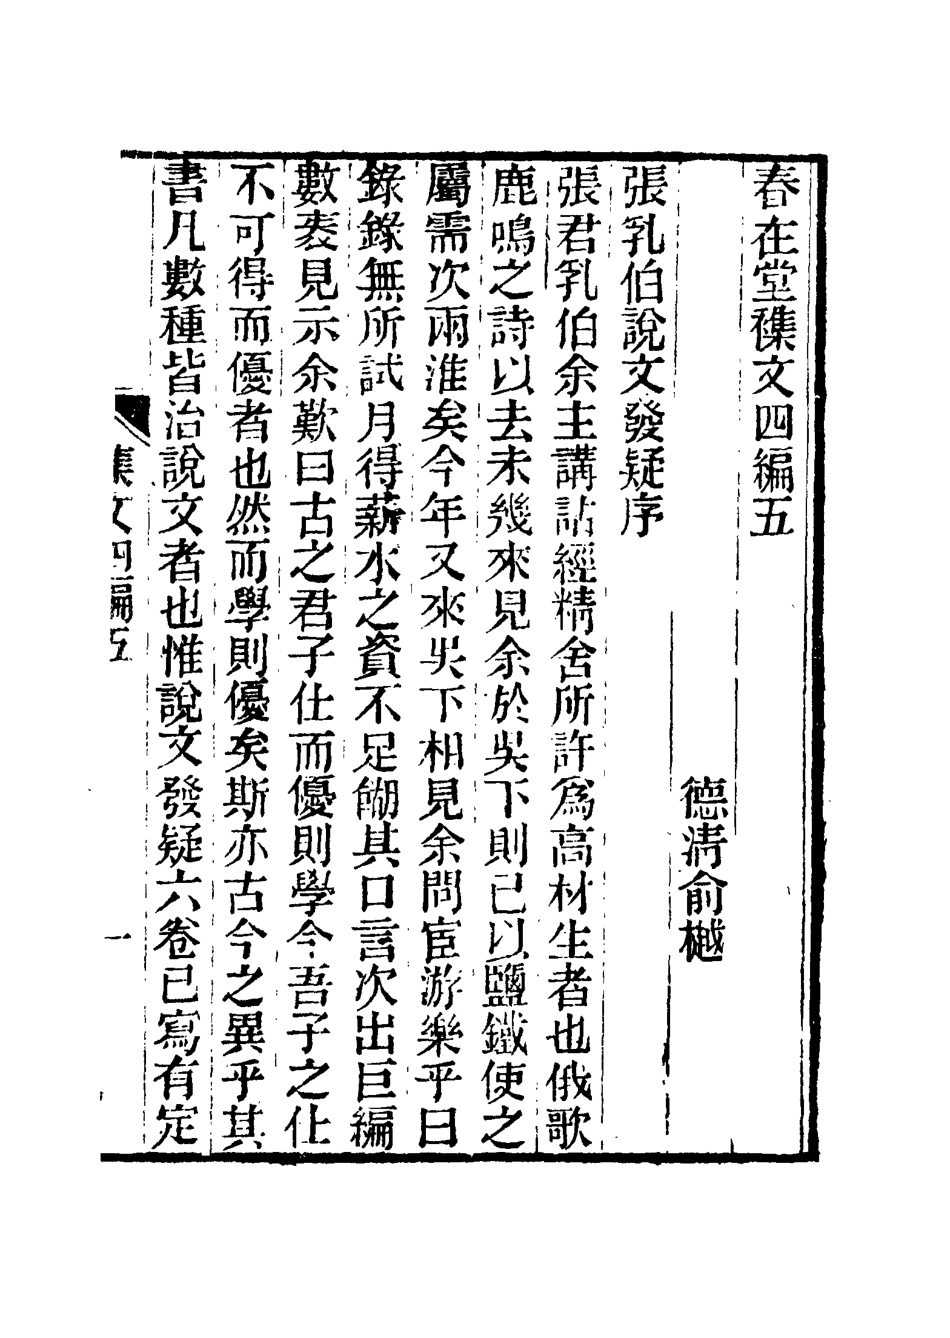 春在堂襍文四編五
德清俞樾
張乳伯說文發疑序
張君乳伯余主講詁經精舍所許爲高材生者也俄歌
鹿鳴之詩以去未幾來見余於吳下則已以鹽鐵使之
屬需次兩淮矣今年又來吳下相見余問宦游樂乎曰
錄錄無所試月得薪水之資不足餬其口言次出巨編
數袠見示余歎曰古之君子仕而優則學今吾子之仕
不可得而優者也然而學則優矣斯亦古今之異乎其
書凡數種皆治說文者也惟說文發疑六卷已寫有定
集文四編五
一